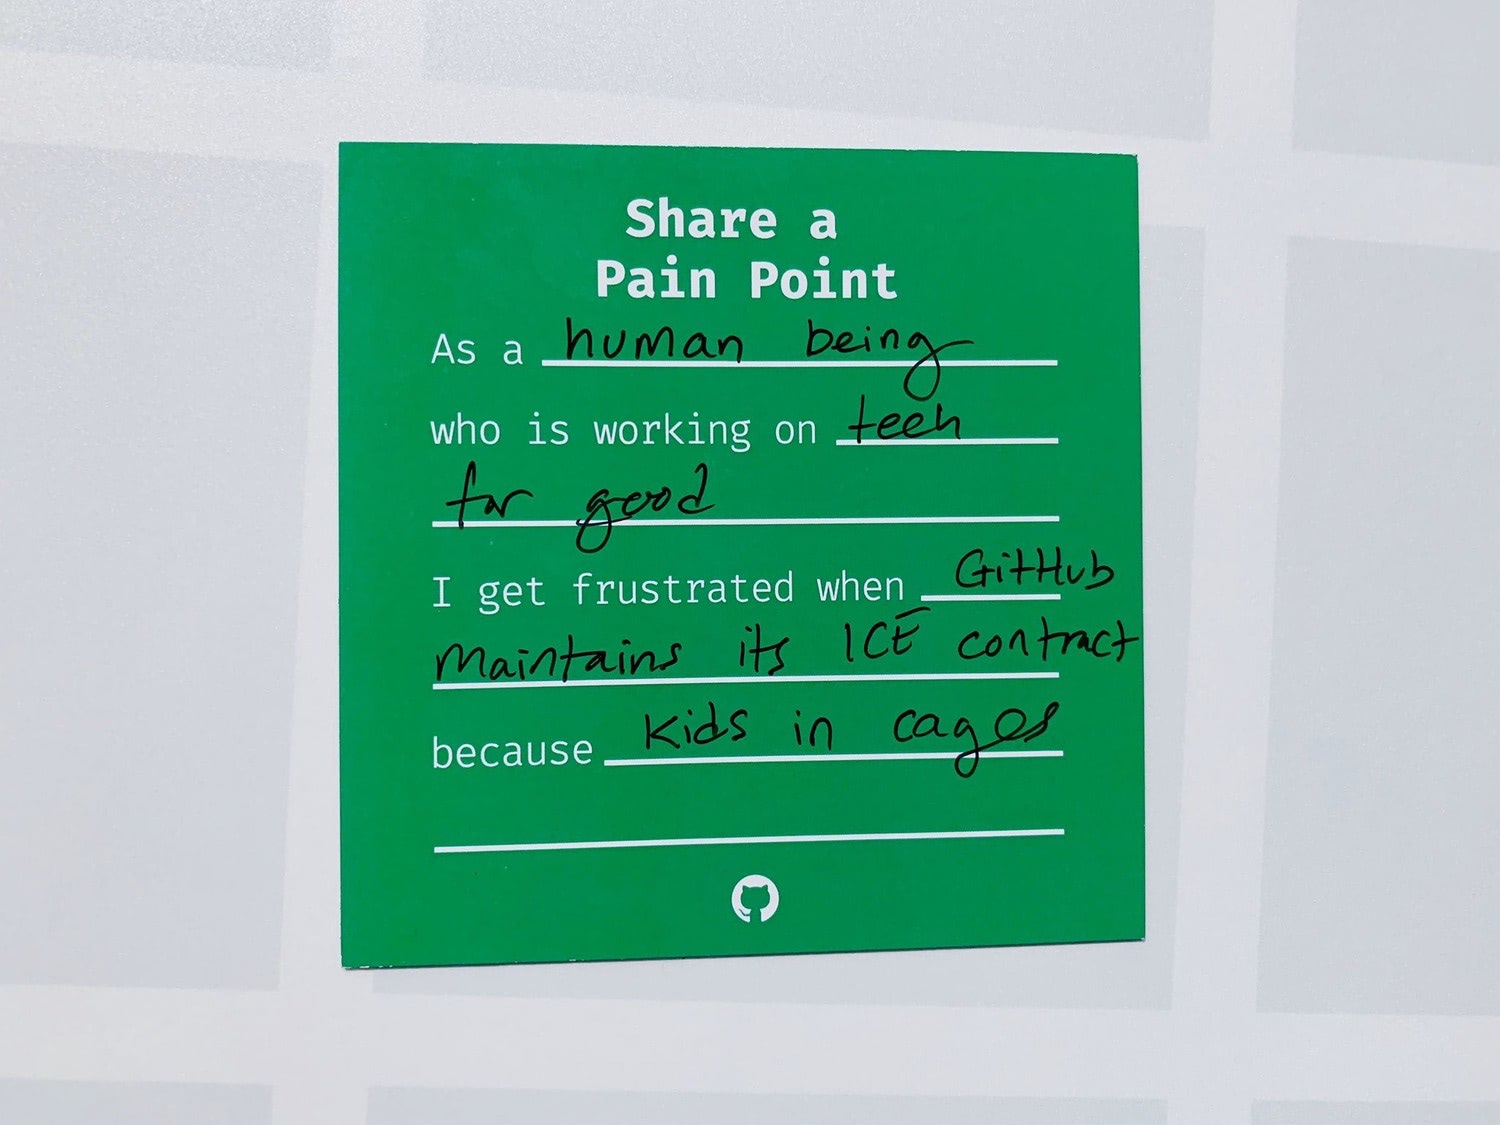 Share a
Pain Point
As a human being
who is working on tech
for good
I get frustrated when GitHub
maintains its ICE contract
because kids in cages